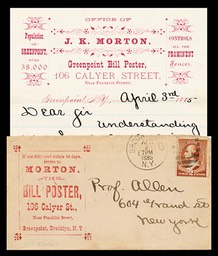 OFFICE OF
J. K. MORTON,
Greenpoint Bill Poster,
106 CALYER STREET,
NEAR FRANKLIN STREET.
Population
OF
GREENPOINT,
over
38,000
CONTROLS
ALL THE
PROMINENT
Fences.
Greenpoint, N.Y. April 3rd 1885
Dear Sir
Understanding
If not delivered within 10 days,
return to
MORTON,
THE
BILL POSTER,
106 Calyer St.,
Near Franklin Street,
Greenpoint, Brooklyn, N. Y.
7 PM
N.Y.
Prof. Allen
604 Grand St
New York